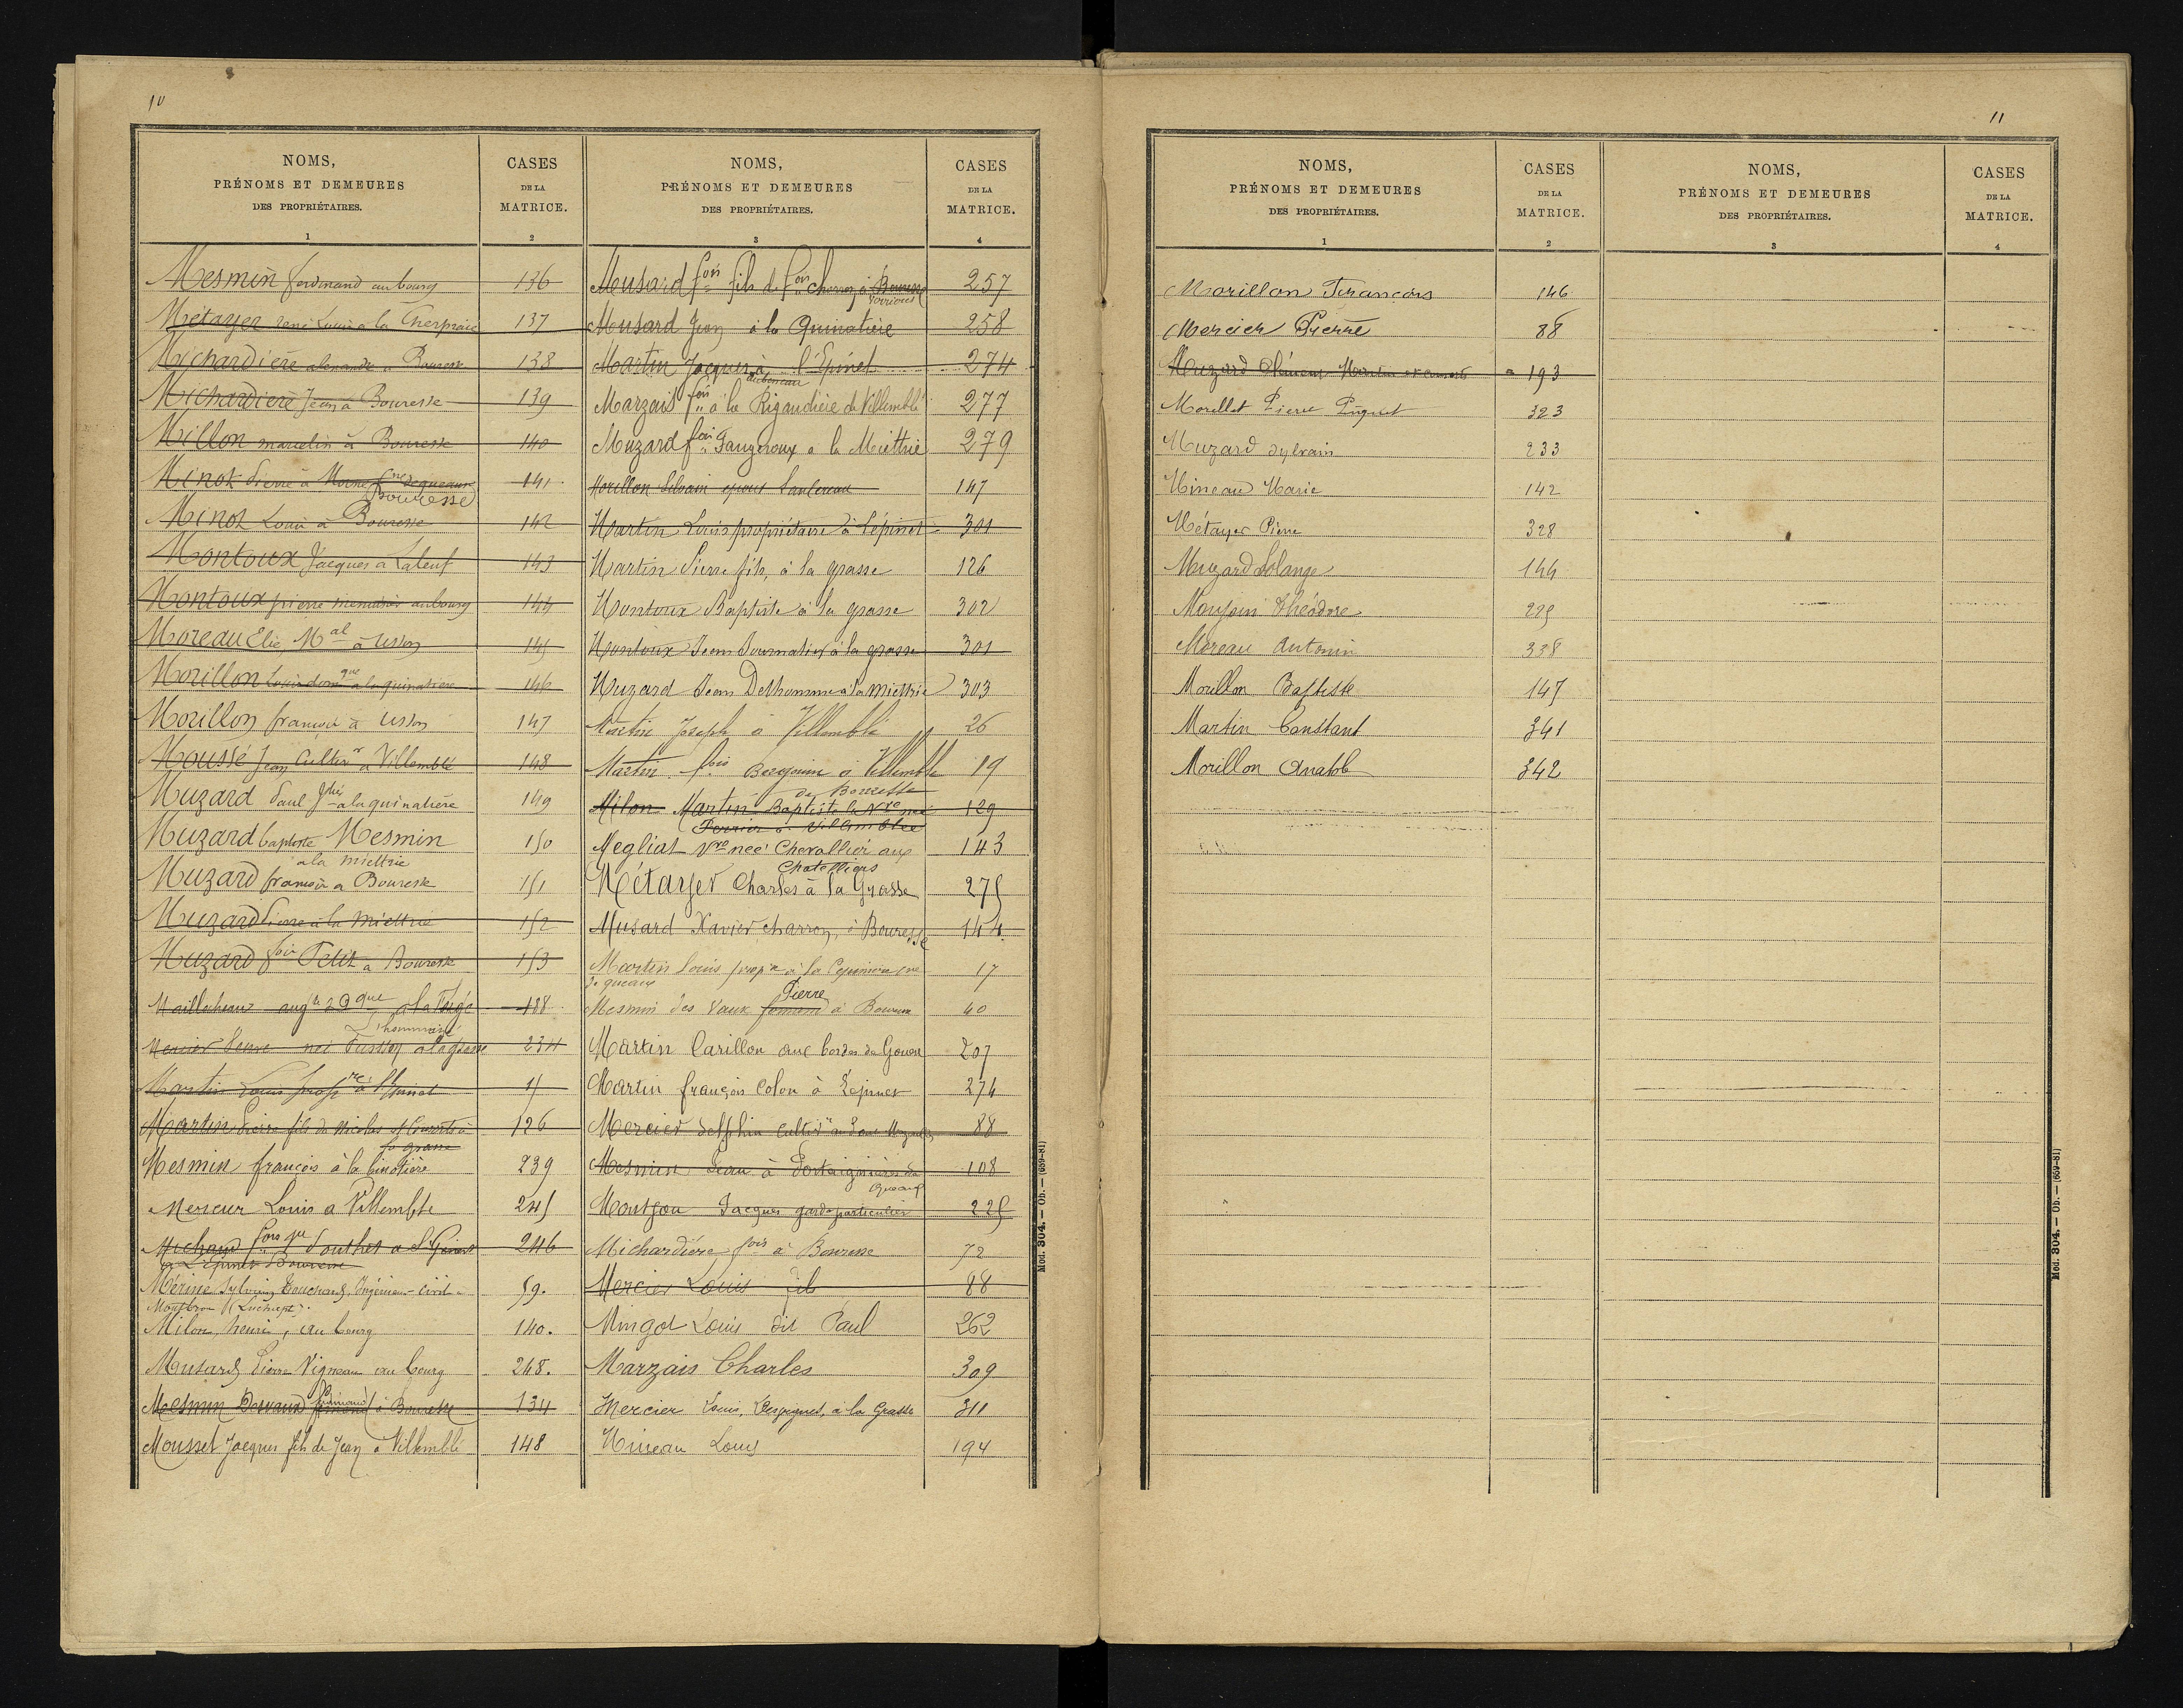 10
NOMS,
PRÉNOMS ET DEMEURES
DES PROPRIÉTAIRES.
1
CASES
DE LA
MATRICE.
2
Mesmin ferdinand au bourg 136
Métayer rené Louis à la 137
Michardière à Bouresse 138
Michardière Jean à Bouresse 139
Millon marcelin à Bouresse 140
Minot Pierre à 141
Bouresse
Minot Louis à Bouresse 142
Montoux Jacques à Laleuf 143
Montoux pierre menuisier au bourg 144
Moreau Elie, Mal à Usson 145
Morillon Louis à la quinatière 146
Morillon françois à Usson 147
Moussé Jean Cultivr à Villemblé 148
Muzard Paul à la quinatière 149
Muzard baptiste Mesmin 150
a la Miettrie
Muzard françois a Bouresse 151
Muzard Pierre à la Miettrie 152
Muzard fois Petit a Bouresse 153
188
234
Martin Louis propre à l'Epinet 15
Martin Pierre fils de Nicolas et Consorts à 126
la grasse
Mesmin françois à la 239
Mercier Louis a Villemblé 245
Michaud 246
à L'épinet Bouresse
Mérine Sylvain Bouchard, Ingénieur-civil à 59.
Montbron (Luchapt).
Milon, henri, au bourg 140.
Musard Pierre Vigneau au bourg 248.
Mesmin Desvaux à Bouresse 134
Mousset Jacques fils de Jean a Villemblé 148
NOMS,
PRÉNOMS ET DEMEURES
DES PROPRIÉTAIRES.
3
CASES
DE LA
MATRICE.
4
Musard fois fils de fois à Bouresse 257
Verrières
Musard Jean à la Quinatière 258
Martin Jacques à l'Epinet 274
Marzais fois à la Rigaudière de Villemblé 277
Muzard fois Fauzeroux a la Miettrie 279
Morillon Silvain 147
Martin Louis propriétaire à Lépinet 301
Martin Pierre fils, à la grasse 126
Montoux Baptiste à la grasse 302
Montoux Jean Journalier à la grasse 301
Muzard Jean Delhomme à la Miettrie 303
Martin Joseph à Villemblé 26
Martin fois à Villemblé 19
de Bouresse
Milon Martin Baptiste la Vve née 129
Perrier à Villemblée
Megliat Vve née Chevallier aux 143
Chatelliers
Métayer Charles à la Grasse 275
Musard Xavier charron, à Bouresse 144
Martin Louis propre à la 17
de queaux
Pierre
Mesmin des Vaux à Bouresse 40
Martin Carillon aux bordes de Gouex 207
Martin françois Colon à Lépinet 274
Mercier delphin 88
Mesmin Jean à de 108
Queaux
Montjou Jacques garde particulier 225
Michardière fois à Bouresse 72
Mercier Louis fils 88
Mingot Louis dit Paul 262
Marzais Charles 309
Mercier Louis, à la Grasse 311
Mineau Louis 194
Mod. 304. — Ob. — (659-81)
11
NOMS,
PRÉNOMS ET DEMEURES
DES PROPRIÉTAIRES.
1
CASES
DE LA
MATRICE.
2
NOMS,
PRÉNOMS ET DEMEURES
DES PROPRIÉTAIRES.
3
CASES
DE LA
MATRICE.
4
Morillon François 146
Mercier Pierre 88
Muzard Clément 193
Morellet Pierre 323
Muzard Sylvain 233
Mineau Marie 142
Métayer Pierre 328
Muzard Solange 144
Théodore 225
Moreau Antonin 338
Morillon Baptiste 147
Martin Constant 341
Morillon Anatole 342
Mod. 304. — Ob. — (659-81)